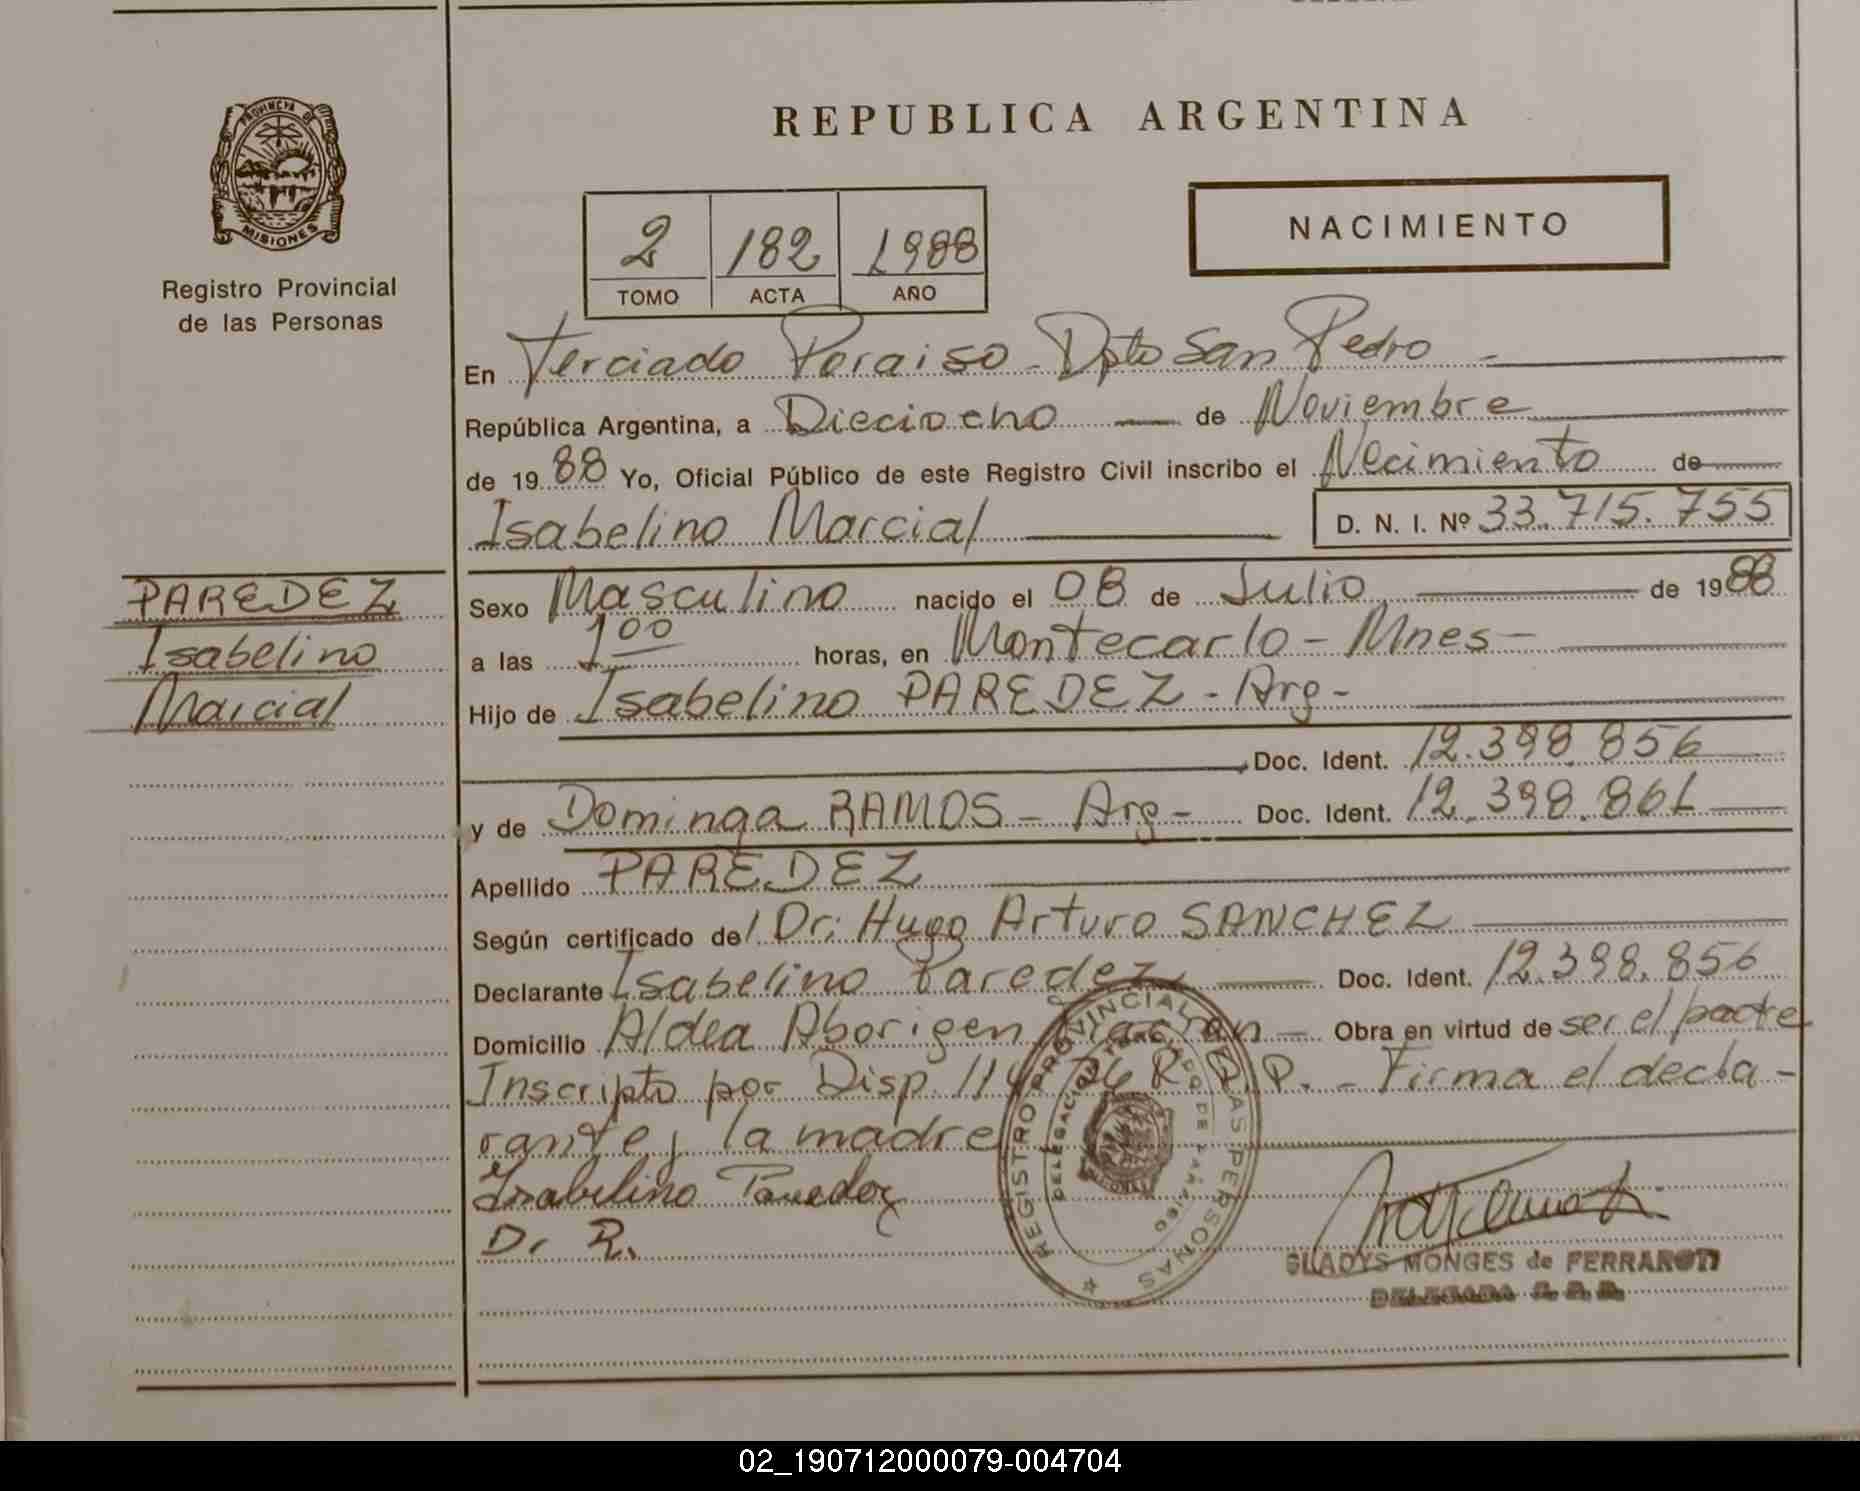 REPUBLICA ARGENTINA
PROVINCIA DE
MISIONES
Registro Provincial
de las Personas
2 182 1988
TOMO ACTA AÑO
NACIMIENTO
En Terciado Paraiso - Dpto San Pedro -
República Argentina, a Dieciocho — de Noviembre
de 1988 Yo, Oficial Público de este Registro Civil inscribo el Necimiento de
Isabelino Marcial D. N. I. Nº 33.715.755
PAREDEZ
Isabelino
Marcial
Sexo Masculino nacido el 08 de Julio de 1988
a las 1 00 horas, en Montecarlo - Mnes -
Hijo de Isabelino PAREDEZ - Arg -
Doc. Ident. 12.398.856
y de Dominga RAMOS - Arg - Doc. Ident. 12.398.861
Apellido PAREDEZ
Según certificado del Dr: Hugo Arturo SANCHEZ
Declarante Isabelino Paredez Doc. Ident. 12.398.856
Domicilio Aldea Aborigen - Obra en virtud de ser el padre
Inscripto por Disp. - Firma el decla-
rante y la madre
Isabelino Paredez
D. R.
REGISTRO PROVINCIAL DE LAS PERSONAS
DELEGACION
GLADYS MONGES de FERRAROTI
DELEGADA
02_190712000079-004704